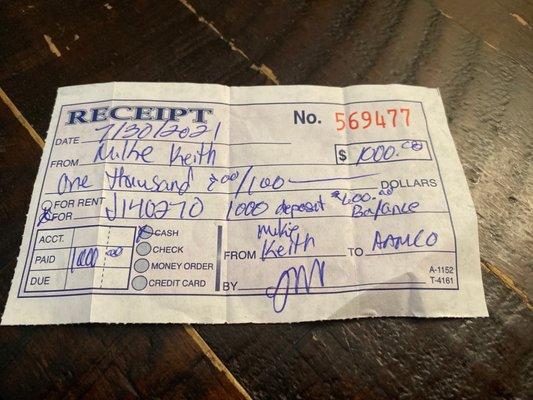 RECEIPT No. 569477
DATE 7/30/2021
FROM Mike Keith $ 1000.00
One thousand & 00/100 DOLLARS
FOR RENT
FOR J140270 1000 deposit Balance
ACCT. CASH
PAID 1000.00 CHECK
DUE MONEY ORDER
CREDIT CARD
FROM Mike Keith TO AAMCO
BY
A-1152
T-4161